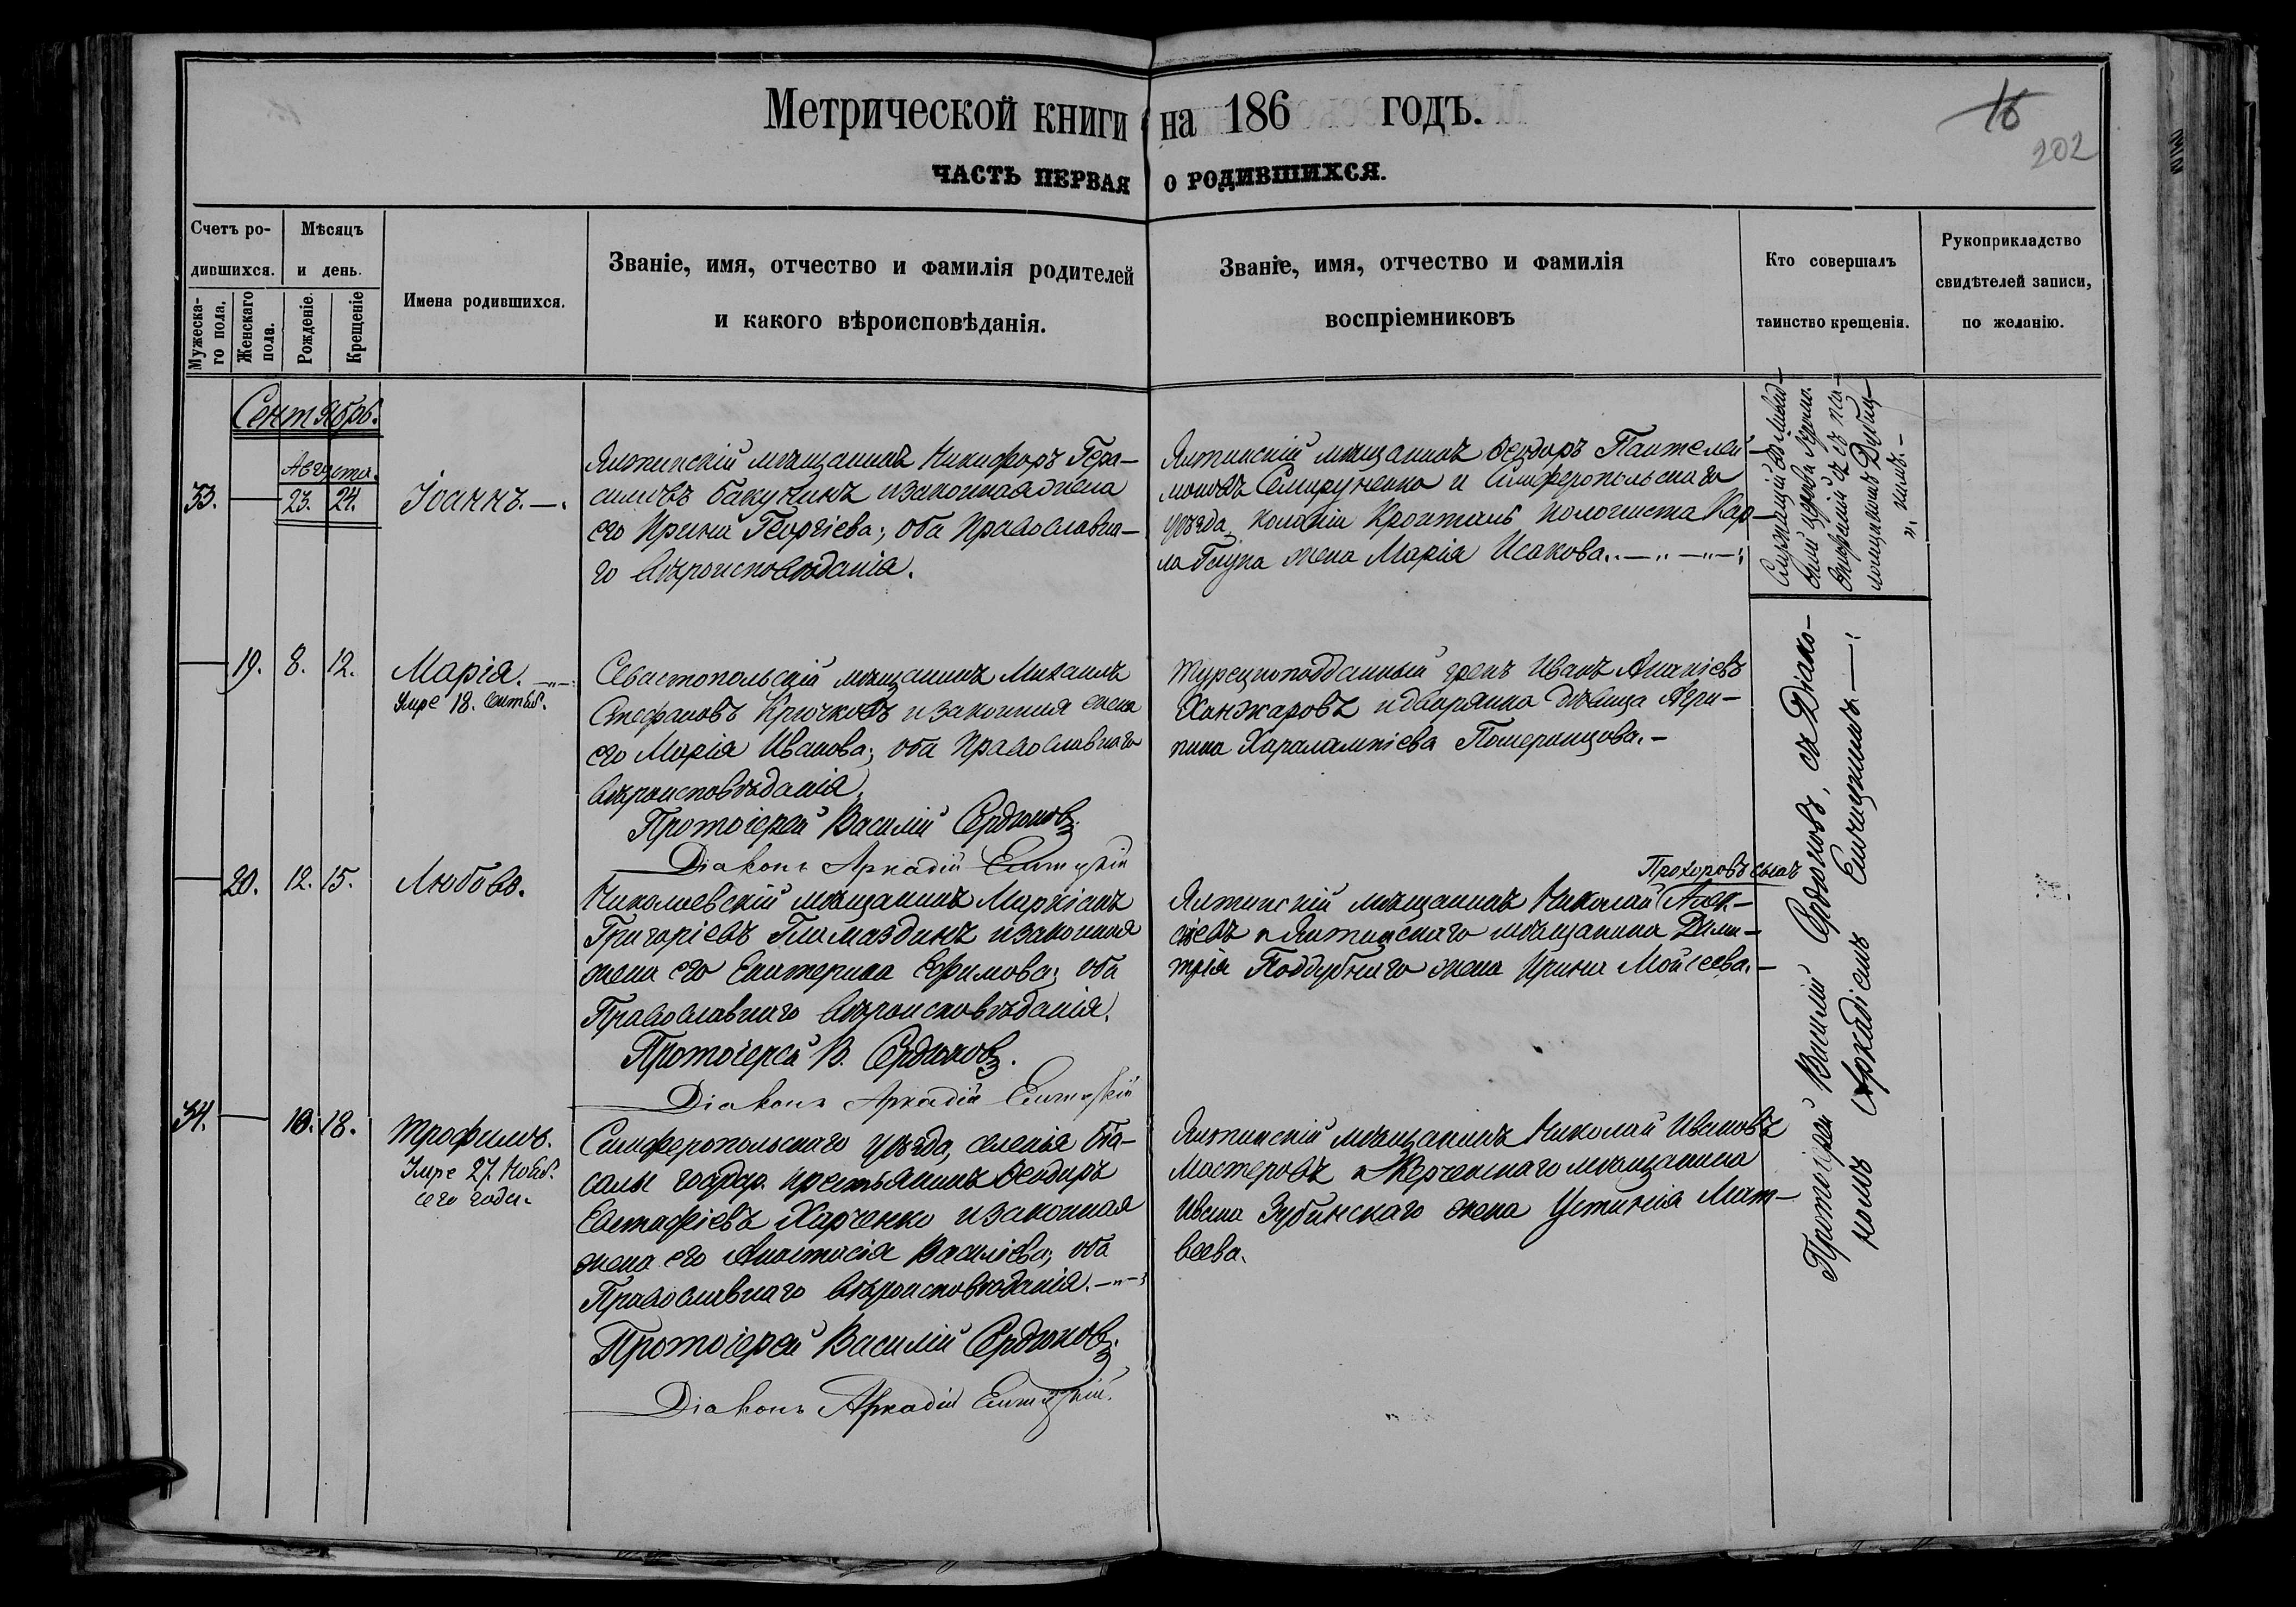 Метрической книги на 186 годъ.
16
202
ЧАСТЬ ПЕРВАЯ О РОДИВШИХСЯ.
Счетъ родившихся.
Мужескаго пола.
Женскаго пола.
Мѣсяцъ и день.
Рожденіе.
Крещеніе
Имена родившихся.
Званіе, имя, отчество и фамилія родителей
и какого вѣроисповѣданія.
Званіе, имя, отчество и фамилія
воспріемниковъ
Кто совершалъ
таинство крещенія.
Рукоприкладство
свидѣтелей записи,
по желанію.
Сентябрь.
Августа.
33. — 23. 24. Іоаннъ. —.
Ялтинскій мѣщанинъ Никифоръ Гера-
симовъ Бакунинъ и законная жена
его Ирина Георгіева; оба Православна-
го вѣроисповѣданія.
Ялтинскій мѣщанинъ Ѳеодоръ Пантелей-
моновъ Семируненко и Симферопольскаго
уѣзда колоніи Кронталь колониста Кар-
ла Глука жена Марія Исакова.
Служащій въ Ливад-
ской церкви
съ по-
— 19. 8. 12. Марія.
Умре 18. Сентяб.
Севастопольскій мѣщанинъ Михаилъ
Стефановъ Крючковъ и законная жена
его Марія Иванова; оба Православнаго
вѣроисповѣданія.
Протоіерей Василій Сердюковъ.
Діаконъ Аркадій
Турецкоподданный грекъ Иванъ
Ханжаровъ и дворянка дѣвица Агри-
пина Харалампіева Померанцова. —
— 20. 12. 15. Любовь.
Николаевскій мѣщанинъ Маркіанъ
Григоріевъ и законная
жена его Екатерина Ефимова; оба
Православнаго вѣроисповѣданія.
Протоіерей В. Сердюковъ.
Діаконъ Аркадій
Прохоровъ сынъ
Ялтинскій мѣщанинъ Николай Алек-
сѣевъ и Ялтинскаго мѣщанина Дими-
трія Поддубнаго жена Ирина Мойсеева. —
34. — 10. 18. Трофимъ.
Умре 27. Нояб.
сего года.
Симферопольскаго уѣзда, селенія
салы государ. крестьянинъ Ѳеодоръ
Евстафіевъ Харченко и законная
жена его Анастасія Василіева; оба
Православнаго вѣроисповѣданія.
Протоіерей Василій Сердюковъ.
Діаконъ Аркадій
Ялтинскій мѣщанинъ Николай Ивановъ
Мастеровъ и Керченскаго мѣщанина
Ивана Зубинскаго жена Устинія Мат-
веева.
Протоіерей Василій Сердюковъ, съ Діако-
номъ Аркадіемъ